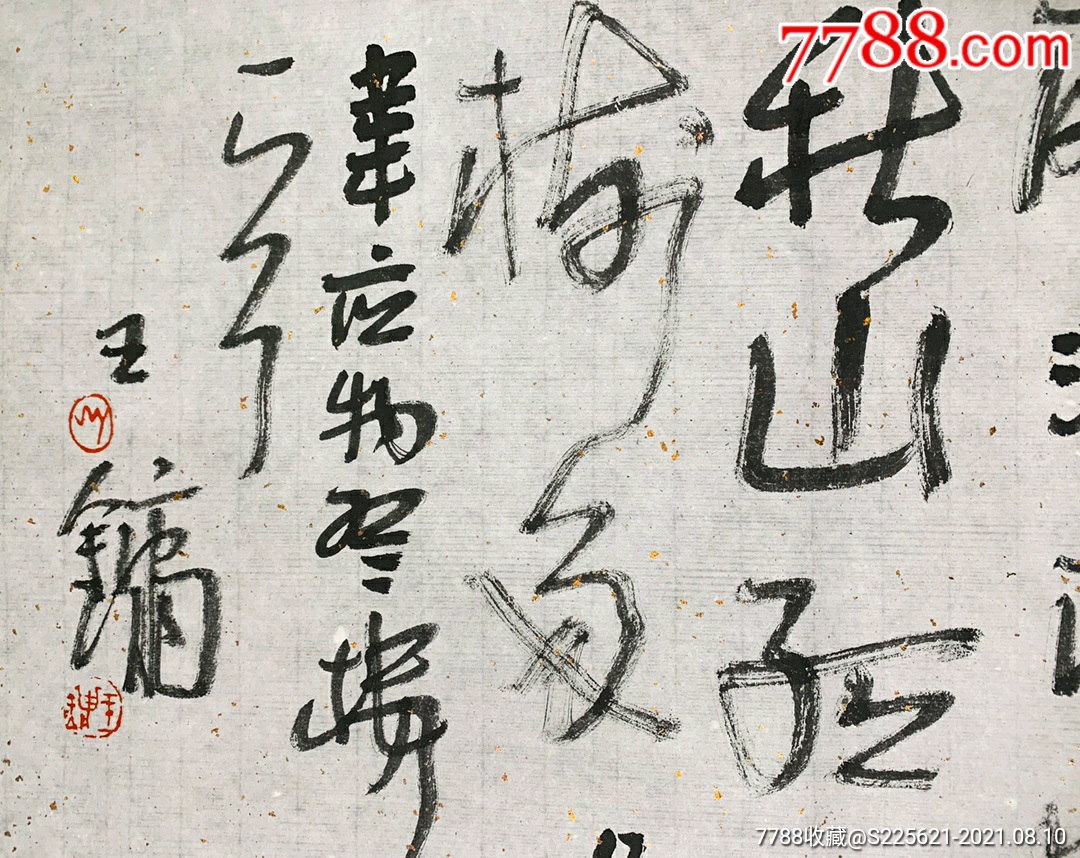 7788.com
秋山红
树多
韋应物登楼
王镛
7788收藏@S225621-2021.08.10